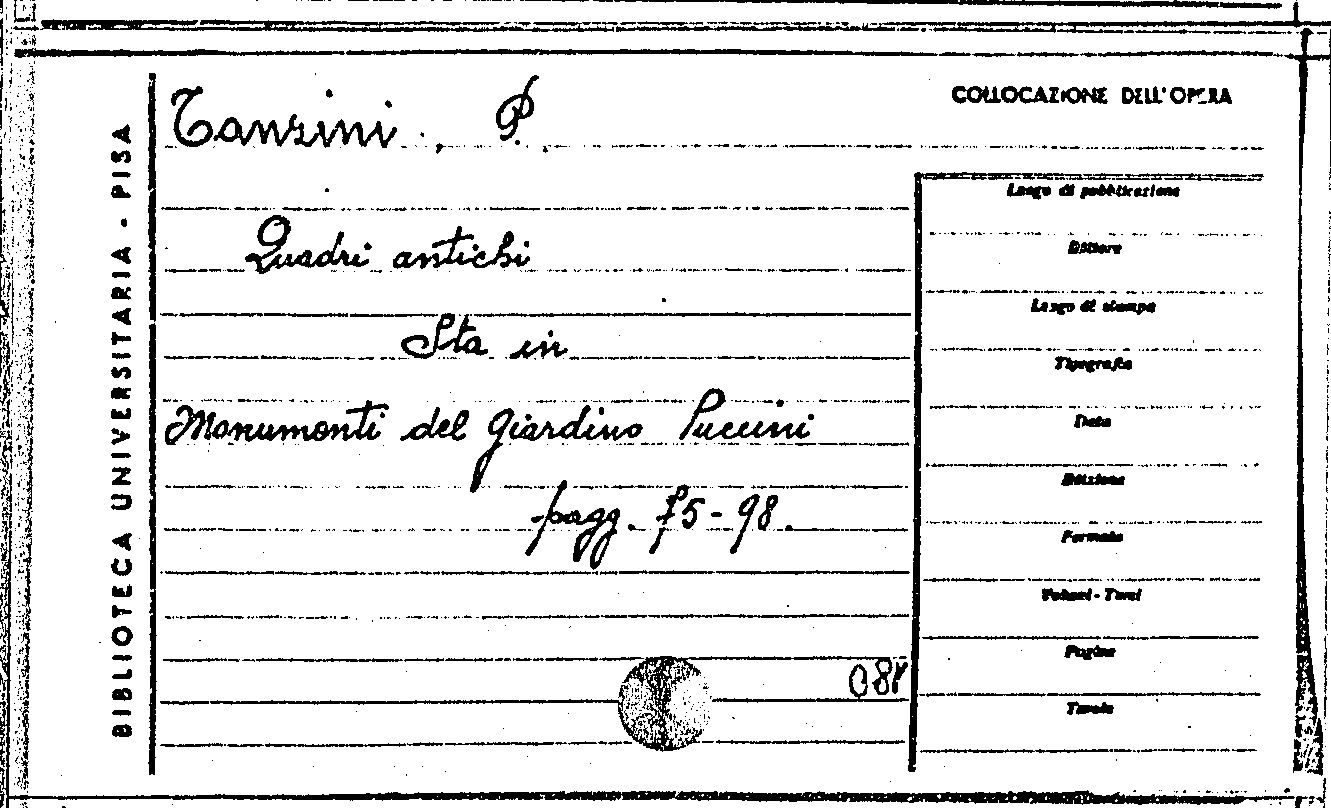 BIBLIOTECA UNIVERSITARIA - PISA
Tanzini, P.
Quadri antichi
Sta in
Monumenti del Giardino Puccini
pagg. 75-98.
COLLOCAZIONE DELL'OPERA
Luogo di pubblicazione
Editore
Luogo di stampa
Tipografia
Data
Edizione
Formato
Volumi - Tomi
Pagine
Tavole